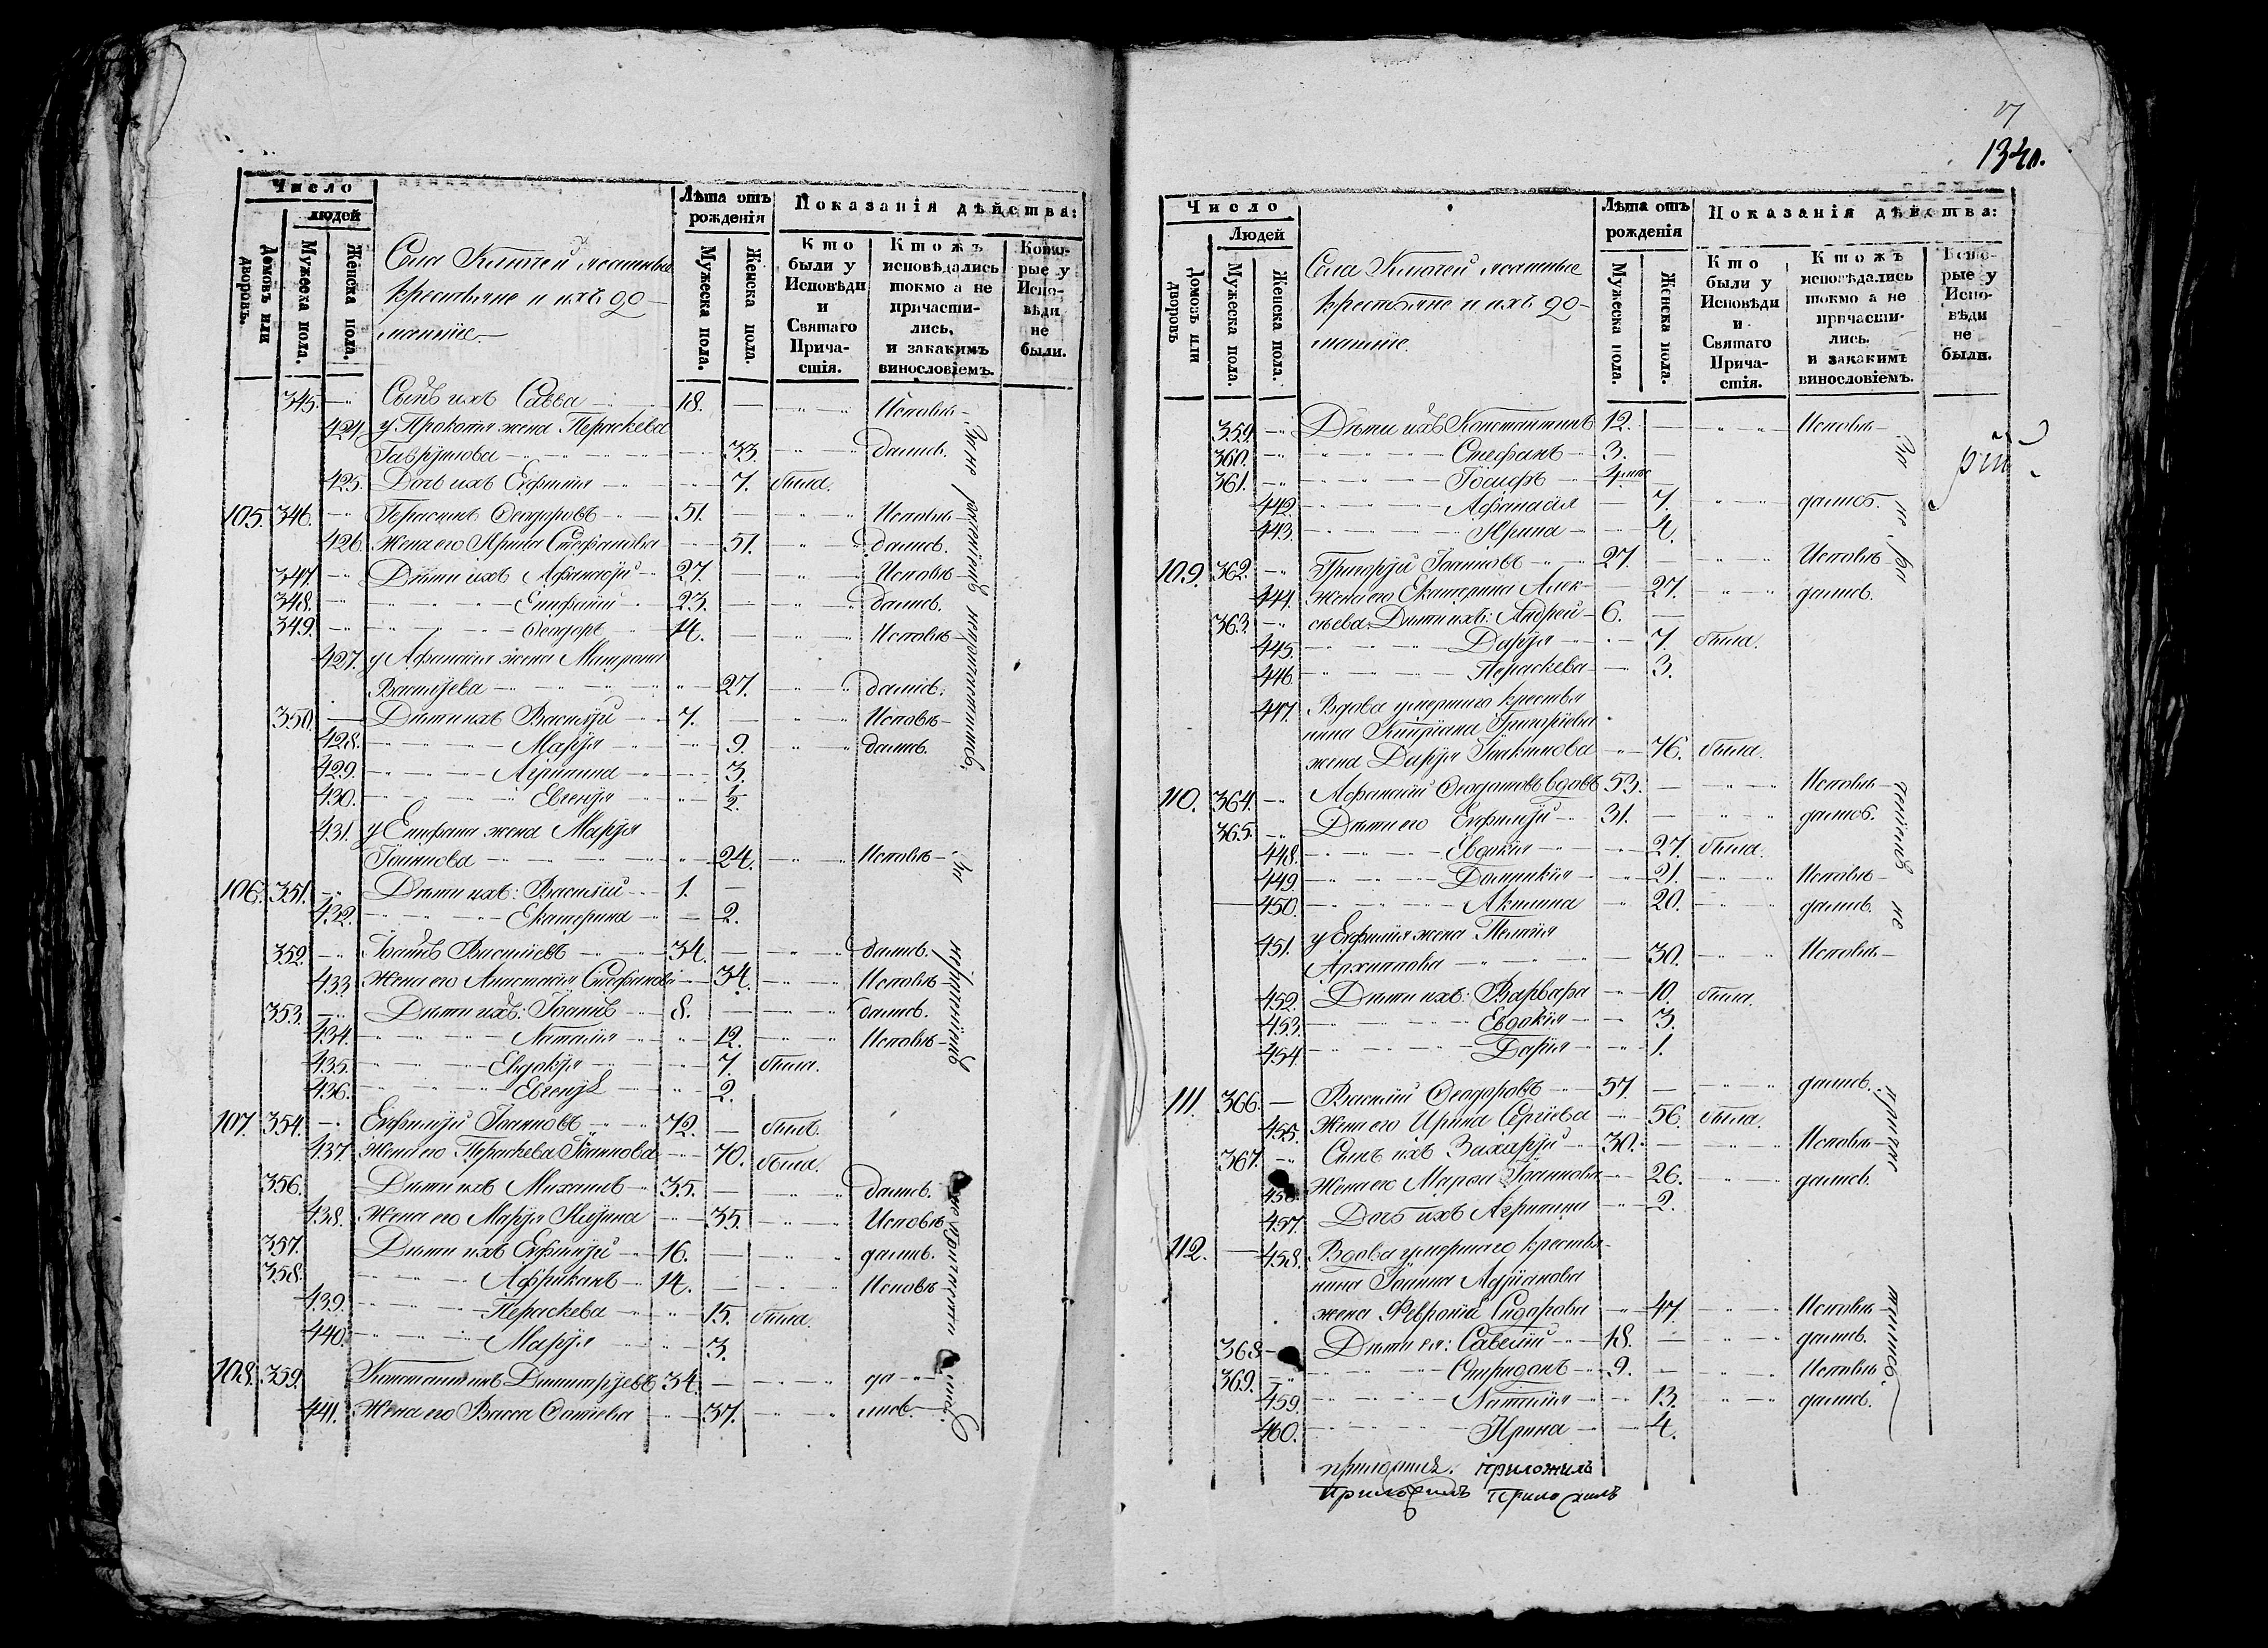 Число
людей
Домовъ или дворовъ.
Мужеска пола.
Женска пола.
крестьяне и ихъ до-
машніе.
Лѣта отъ рожденія
Мужеска пола.
Женска пола.
Показанія дѣйства:
Кто были у Исповѣди и Святаго Причастія.
Ктожъ исповѣдались токмо а не причастились, и закакимъ винословіемъ.
Которые у Исповѣди не были.
345. Сынъ ихъ Савва 18. Исповѣ-
424. у Прокопія жена Параскева
Гаврилова 33. дались.
425. Дочь ихъ Евфимія 7. была.
105. 346. Герасимъ Ѳеодоровъ 51. Исповѣ-
426. Жена его Ирина Стефанова 51. дались.
347. Дѣти ихъ Афанасій 27. Исповѣ-
348. Епифаній 23. дались.
349. Ѳеодоръ 14. Исповѣ-
427. у Афанасія жена Матрона
Василіева 27. дались.
350. Дѣти ихъ Василій 7. Исповѣ-
428. Марія 9. дались.
429. Агрипина 3.
430. Евгенія 1/2.
431. у Епифана жена Марія
Іоаннова 24. Исповѣ-
106. 351. Дѣти ихъ: Василій 1.
432. Екатерина 2.
352. Іоаннъ Василіевъ 34. дались.
433. Жена его Анастасія Стефанова 34. Исповѣ
353. Дѣти ихъ: Іоаннъ 8. дались.
434. Наталія 12. Исповѣ-
435. Евдокія 7. была.
436. 2.
107. 354. Евфимій Іоанновъ 72. былъ.
437. Жена его Параскева Іоаннова 70. была.
356. Дѣти ихъ Михаилъ 35. дались.
438. Жена его Марія 35. Исповѣ-
357. Дѣти ихъ Евфимій 16. дались.
358. Африканъ 14. Исповѣ
439. Параскева 15. была.
440. Марія 3.
108. 359. Константинъ Димитріевъ 34. да-
441. Жена его Васса 37. лись.
Число
Людей
Домовъ или дворовъ
Мужеска пола.
Женска пола.
Села
крестьяне и ихъ до-
машніе.
Лѣта отъ рожденія
Мужеска пола.
Женска пола.
Показанія дѣйства:
Кто были у Исповѣди и Святаго Причастія.
Ктожъ исповѣдались токмо а не причастились. и закакимъ винословіемъ.
Которые у Исповѣди не были.
359. Дѣти ихъ Константинъ 12. Исповѣ-
360. Стефанъ 3.
361. Іосифъ
442. Афанасія 7. дались.
443. Ирина 4.
109. 362. Григорій Іоанновъ 27. Исповѣ
444. Жена его Екатерина Алек- 27. дались.
363. сѣева. Дѣти ихъ: Андрей 6.
445. Дарія 7. была.
446. Параскева 3.
447. Вдова умершаго крестья
нина Кипріана Григоріева
жена Дарія Іоакимова 76. была.
110. 364. Афанасій вдовъ 53. Исповѣ-
365. Дѣти его Евфимій 31. дались.
448. Евдокія 27. была.
449. Домникія 21. Исповѣ-
450. Акилина 20. дались.
451. у Евфимія жена Пелагія
Архиппова 30. Исповѣ-
452. Дѣти ихъ: Варвара 10. была.
453. Евдокія 3.
454. Дарія 1.
111. 366. Василій Ѳеодоровъ 57. дались.
455. Жена его Ирина Сергіева 56. была.
367. Сынъ ихъ Захарій 30. Исповѣ-
456. Жена его Марѳа Іоаннова 26. дались.
457. Дочь ихъ Агрипина 2.
112. 458. Вдова умершаго крестья-
нина Іоанна Адріанова
жена Феѵронія Сидорова 47. Исповѣ-
368. Дѣти ея: Савелій 18. дались.
369. Спиридонъ 9. Исповѣ
459. Наталія 13. дались.
460. Ирина 4.
приложилъ